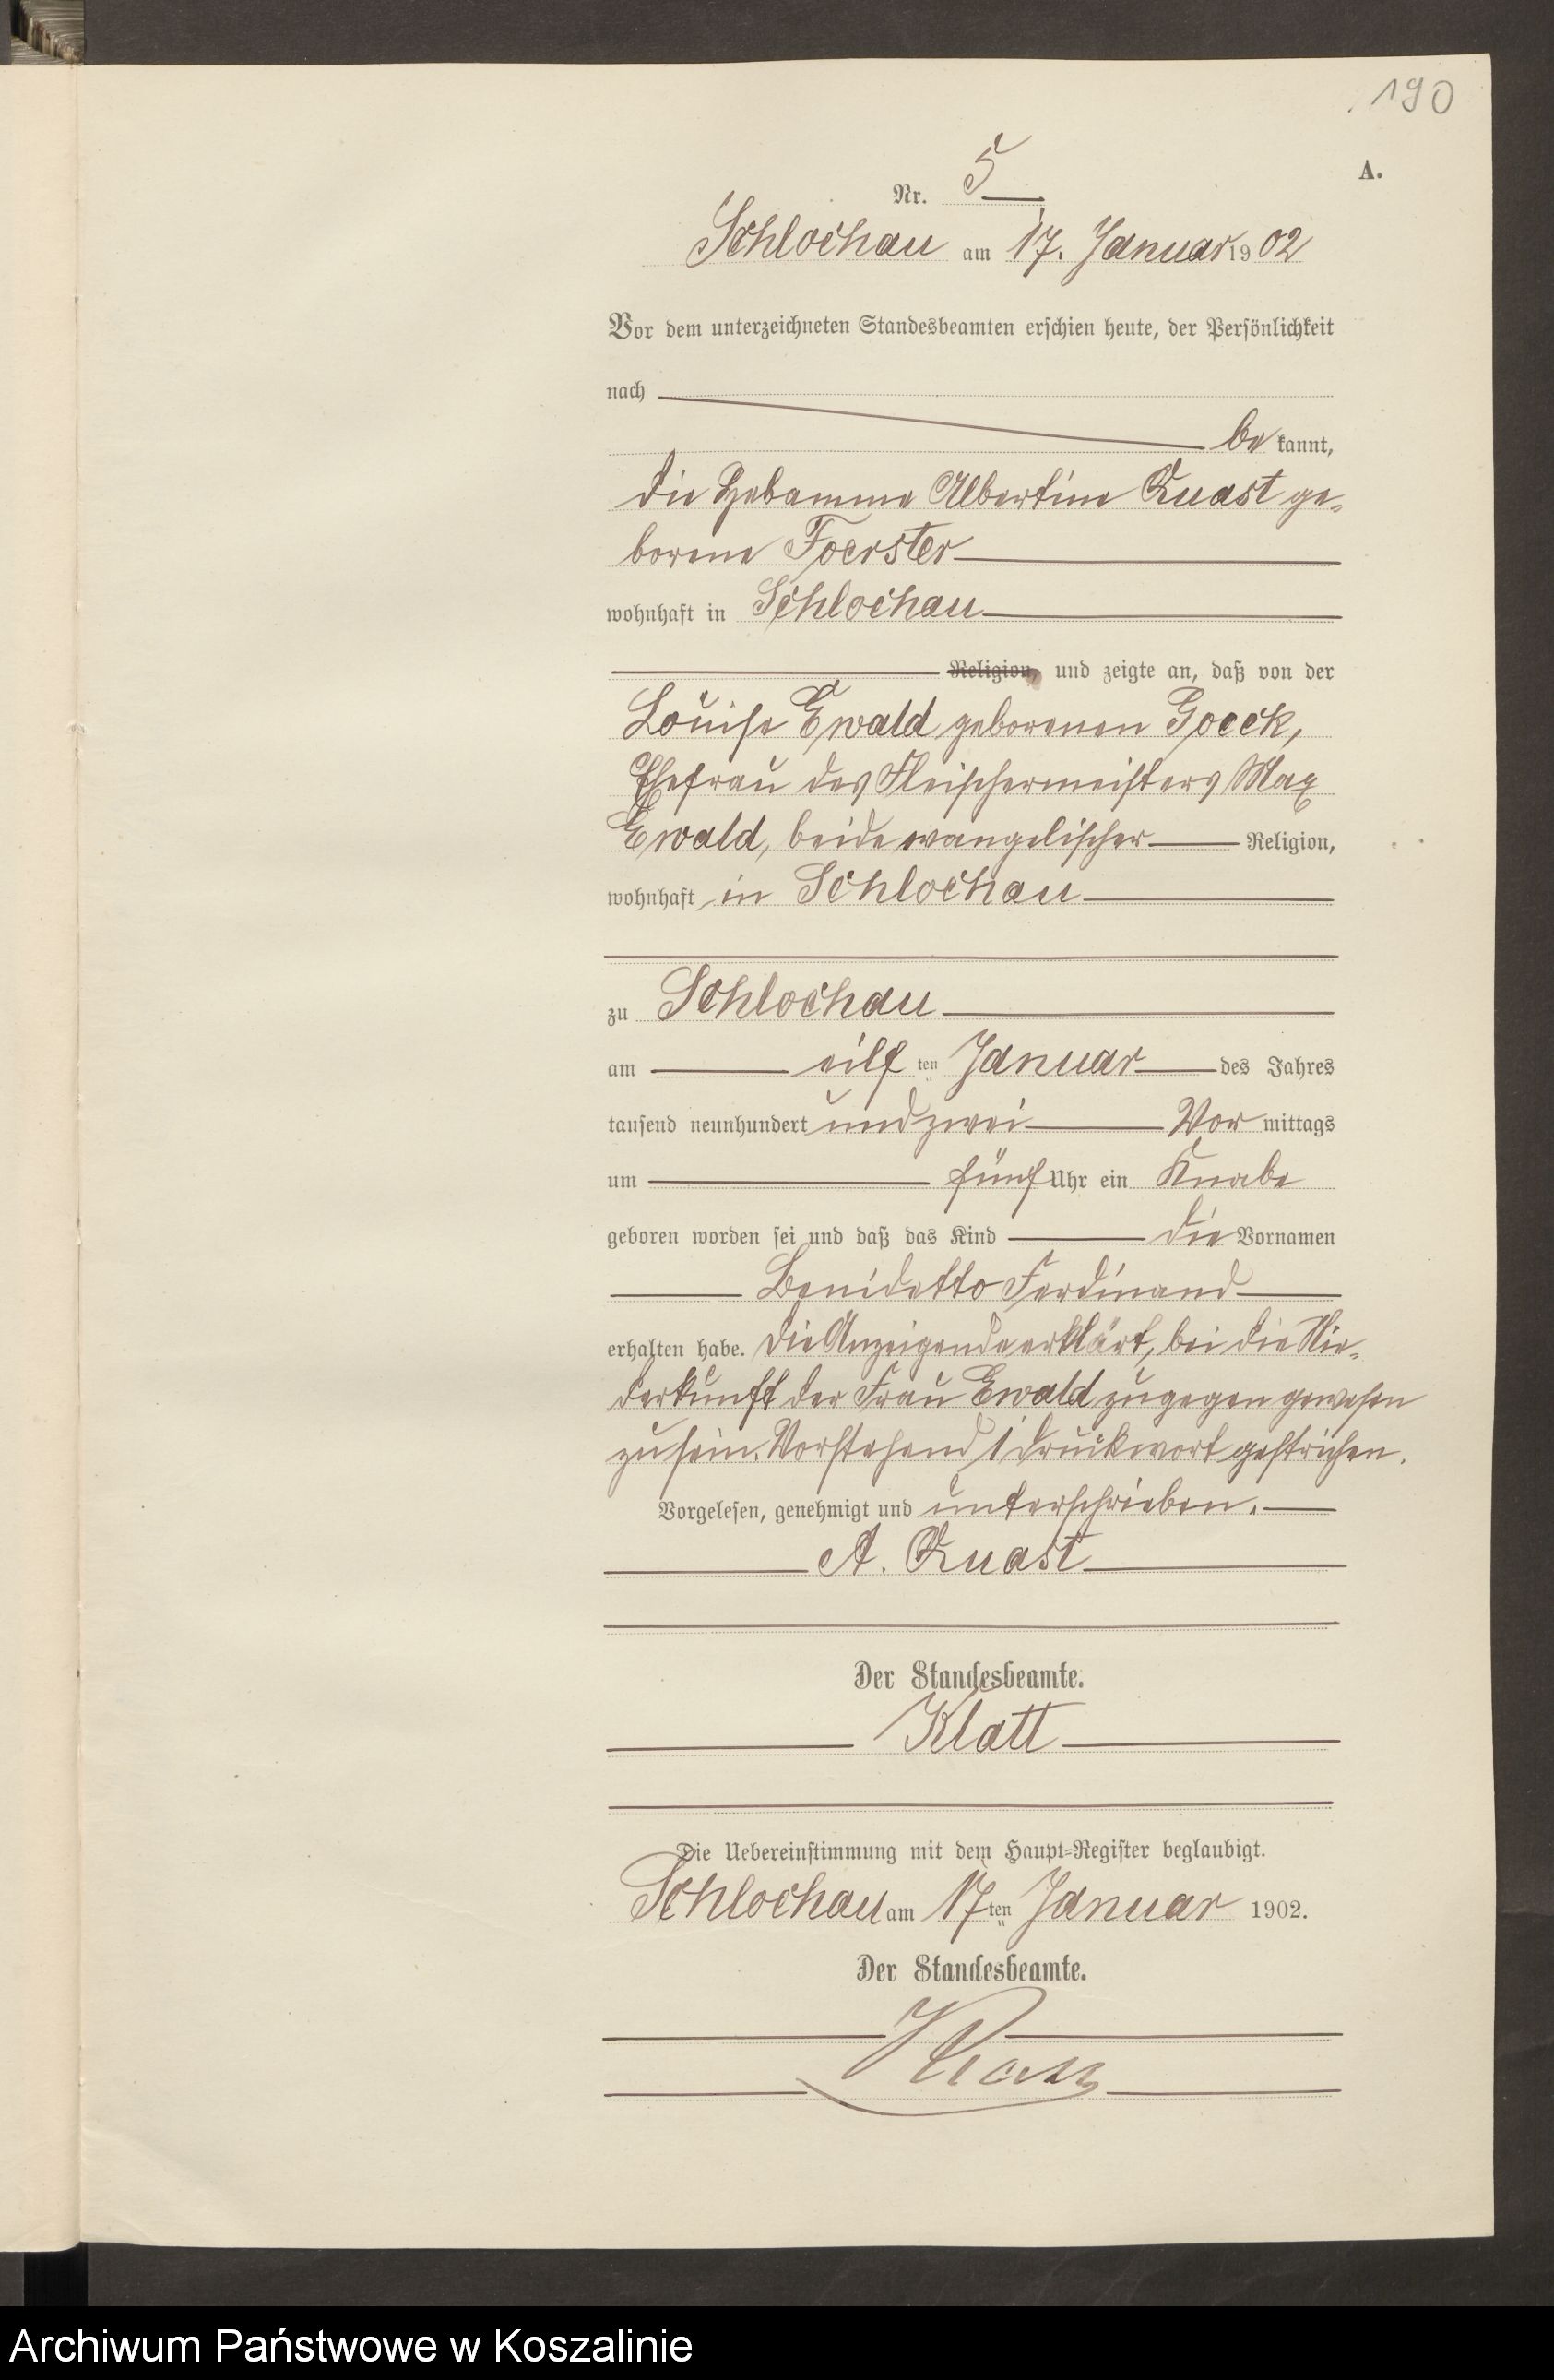 190
A.
Nr. 5
Schlochau am 17. Januar 1902
Vor dem unterzeichneten Standesbeamten erschien heute, der Persönlichkeit
nach
be kannt,
die Hebamme Albertine Quast ge-
borene Foerster
wohnhaft in Schlochau
Religion, und zeigte an, daß von der
Louise Ewald geborenen Goeck,
Ehefrau des Fleischermeisters Max
Ewald, beide evangelischer Religion,
wohnhaft in Schlochau
zu Schlochau
am eilf ten Januar des Jahres
tausend neunhundert und zwei Vor mittags
um fünf Uhr ein Knabe
geboren worden sei und daß das Kind die Vornamen
Benidetto Ferdinand
erhalten habe. Die Anzeigende erklärt, bei die Nie-
derkunft der Frau Ewald zugegen gewesen
zu sein. Vorstehend 1 Druckwort gestrichen.
Vorgelesen, genehmigt und unterschrieben.
A. Quast
Der Standesbeamte.
Klatt
Die Uebereinstimmung mit dem Haupt-Register beglaubigt.
Schlochau am 17ten Januar 1902.
Der Standesbeamte.
Klatt
Archiwum Państwowe w Koszalinie